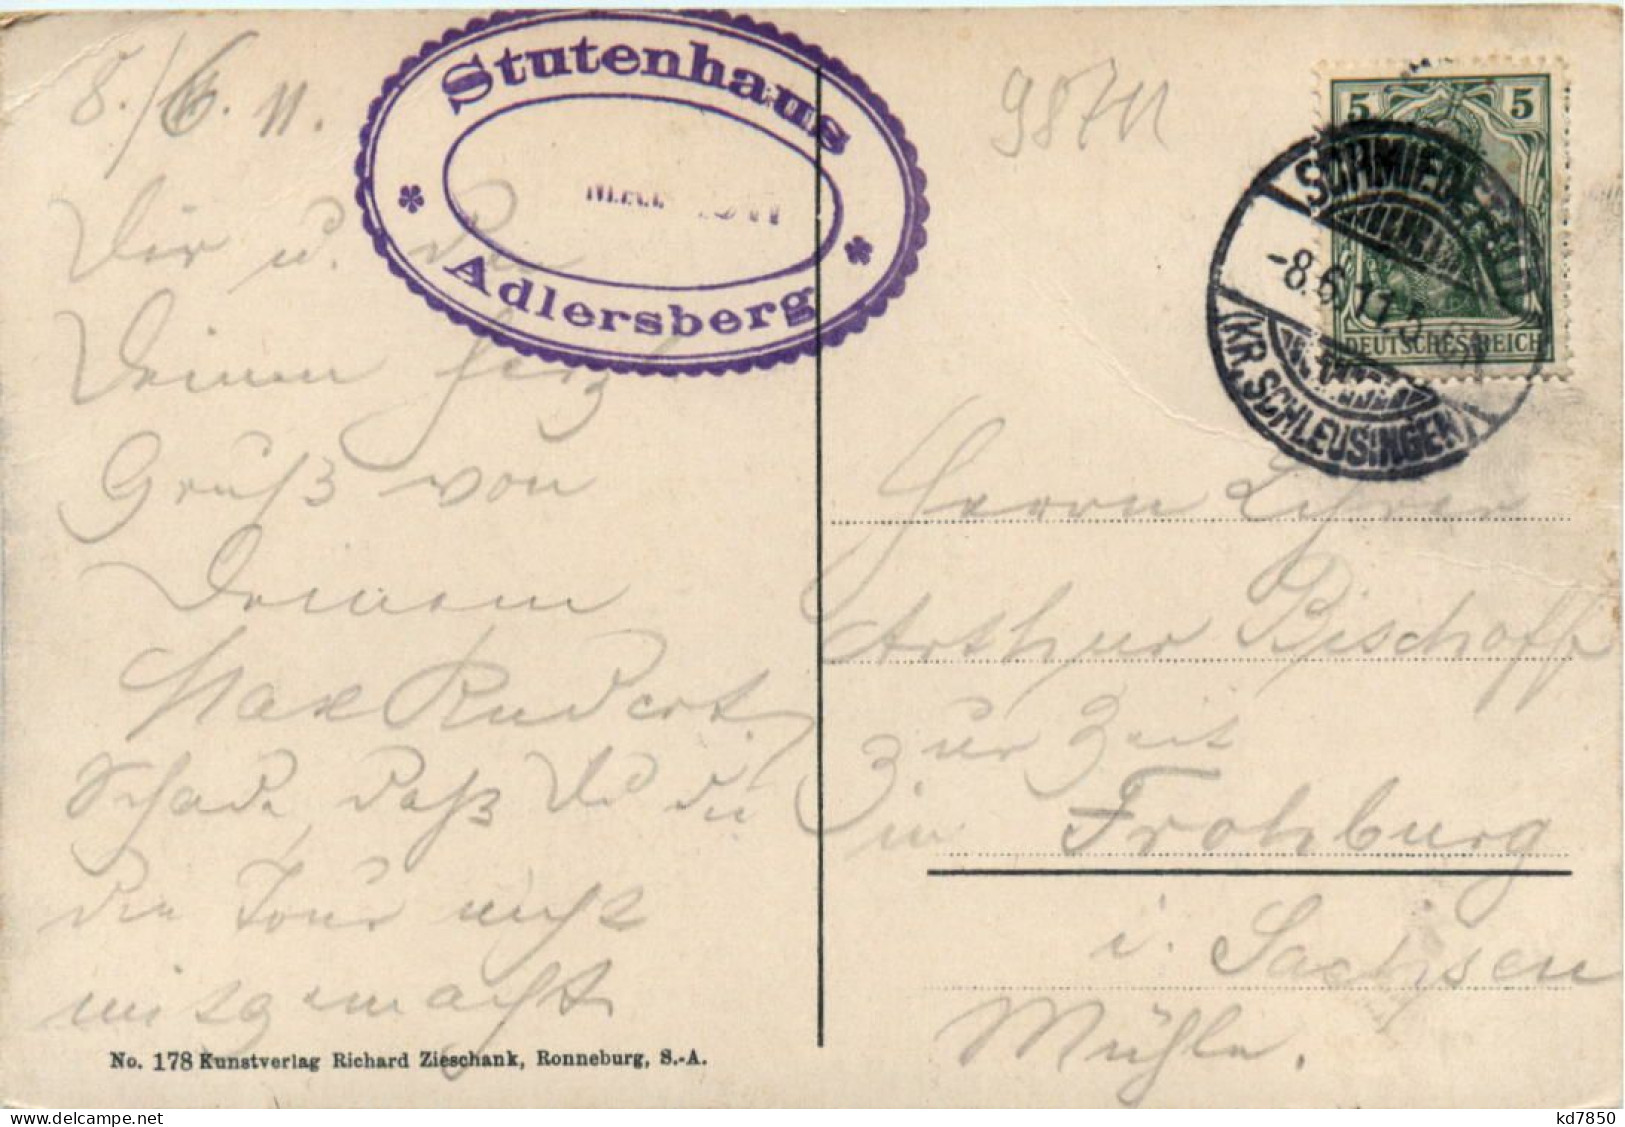 8./6. 11.
Dir u. den
Deinen herzl.
Gruß von
Deinem
Max Rudert.
Schade, daß Du die
die Tour nicht
mitgemacht
No. 178 Kunstverlag Richard Zieschank, Ronneburg, S.-A.
Stutenhaus
Adlersberg
98711
5 5
DEUTSCHES REICH
SCHMIEDEFELD
-8.6.11.5-6N
(KR. SCHLEUSINGEN)
Herrn Lehrer
Arthur Bischoff
zur Zeit
in Frohburg
i. Sachsen
Mühle.
delcampe.net
kd7850